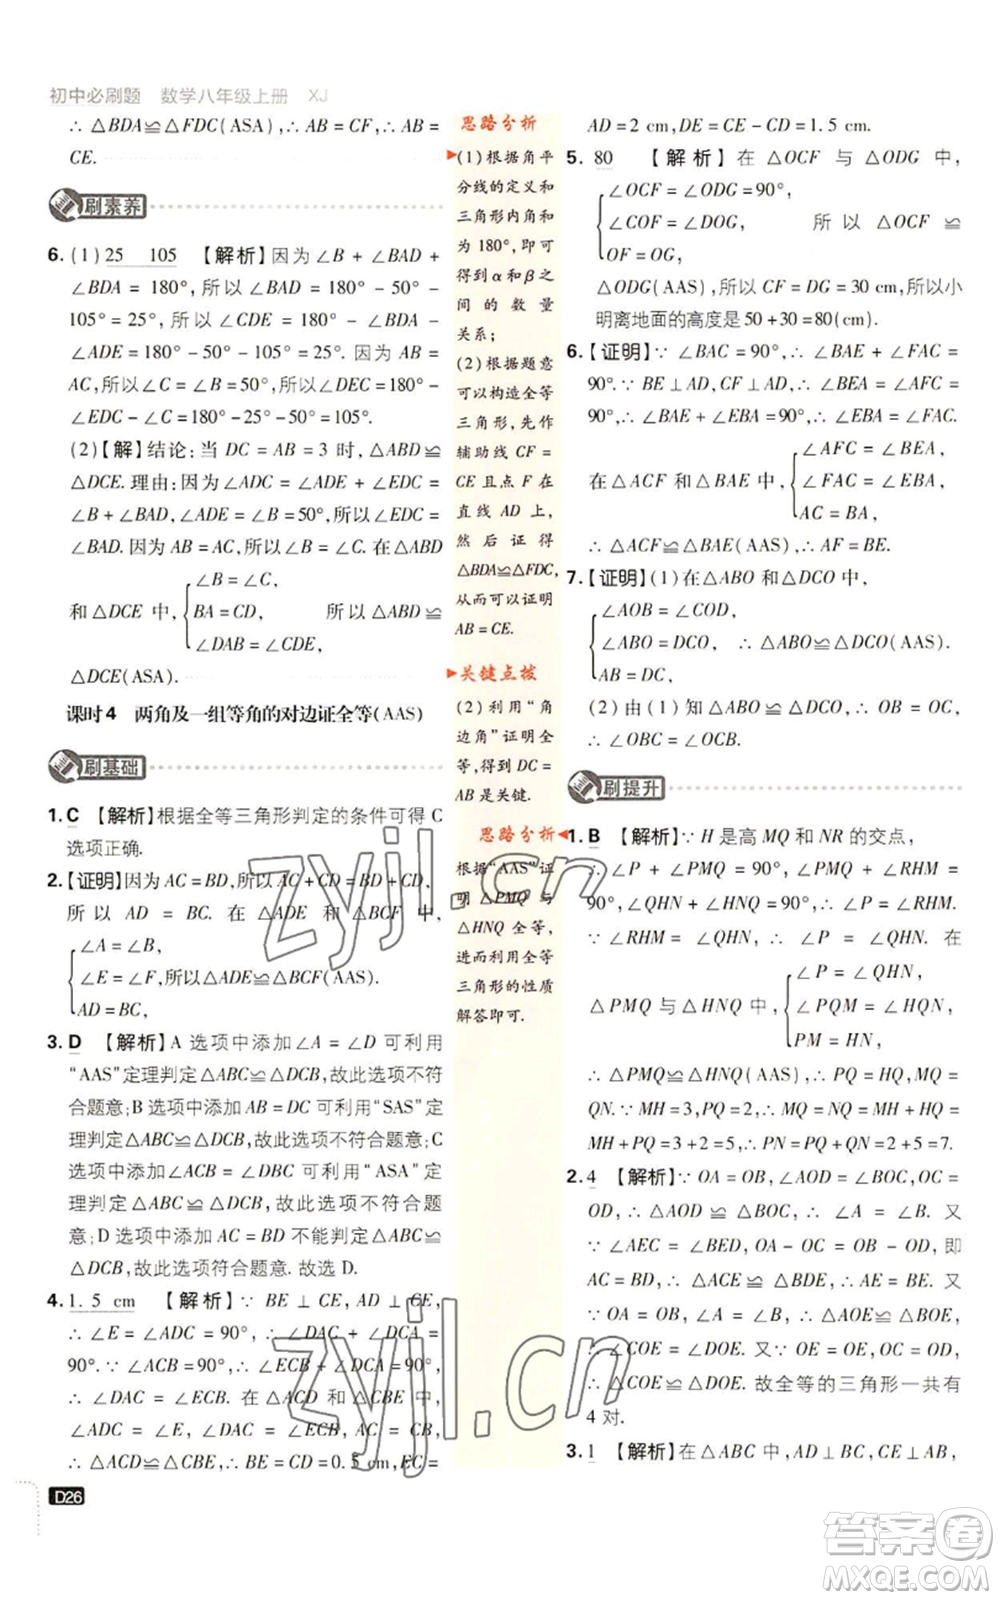 初中必刷题 数学八年级上册 XJ
∴ △BDA≌△FDC(ASA),∴ AB = CF,∴ AB =
CE.
刷素养
6. (1) 25 105 【解析】因为∠B + ∠BAD +
∠BDA = 180°, 所以∠BAD = 180° - 50° -
105° = 25°, 所以∠CDE = 180° - ∠BDA -
∠ADE = 180° - 50° - 105° = 25°. 因为 AB =
AC,所以∠C = ∠B = 50°,所以∠DEC = 180° -
∠EDC - ∠C = 180° - 25° - 50° = 105°.
(2)【解】结论:当 DC = AB = 3 时,△ABD≌
△DCE. 理由:因为∠ADC = ∠ADE + ∠EDC =
∠B + ∠BAD,∠ADE = ∠B = 50°,所以∠EDC =
∠BAD. 因为 AB = AC,所以∠B = ∠C. 在△ABD
∠B = ∠C,
和△DCE 中, BA = CD, 所以△ABD≌
∠DAB = ∠CDE,
△DCE(ASA).
课时4 两角及一组等角的对边证全等(AAS)
刷基础
1. C 【解析】根据全等三角形判定的条件可得 C
选项正确.
2.【证明】因为 AC = BD,所以 AC + CD = BD + CD,
所以 AD = BC. 在△ADE 和△BCF 中,
∠A = ∠B,
∠E = ∠F,所以△ADE≌△BCF(AAS).
AD = BC,
3. D 【解析】A 选项中添加∠A = ∠D 可利用
“AAS”定理判定△ABC≌△DCB,故此选项不符
合题意;B 选项中添加 AB = DC 可利用“SAS”定
理判定△ABC≌△DCB,故此选项不符合题意;C
选项中添加∠ACB = ∠DBC 可利用“ASA”定
理判定△ABC≌△DCB,故此选项不符合题
意;D 选项中添加 AC = BD 不能判定△ABC≌
△DCB,故此选项符合题意. 故选 D.
4. 1. 5 cm 【解析】∵ BE ⊥ CE, AD ⊥ CE,
∴ ∠E = ∠ADC = 90°, ∴ ∠DAC + ∠DCA =
90°. ∵ ∠ACB = 90°, ∴ ∠ECB + ∠DCA = 90°,
∴ ∠DAC = ∠ECB. 在△ACD 和△CBE 中,
∠ADC = ∠E, ∠DAC = ∠ECB, AC = CB,
∴ △ACD≌△CBE, ∴ BE = CD = 0. 5 cm, EC =
D26
思路分析
(1)根据角平
分线的定义和
三角形内角和
为180°,即可
得到α和β之
间的数量
关系;
(2)根据题意
可以构造全等
三角形,先作
辅助线 CF =
CE 且点 F 在
直线 AD 上,
然后证得
△BDA≌△FDC,
从而可以证明
AB = CE.
关键点拨
(2)利用“角
边角”证明全
等,得到 DC =
AB 是关键.
思路分析
根据“AAS”证
明△PMQ 与
△HNQ 全等,
进而利用全等
三角形的性质
解答即可.
AD = 2 cm, DE = CE - CD = 1. 5 cm.
5. 80 【解析】在△OCF 与△ODG 中,
∠OCF = ∠ODG = 90°,
∠COF = ∠DOG, 所以△OCF≌
OF = OG,
△ODG(AAS),所以 CF = DG = 30 cm,所以小
明离地面的高度是 50 + 30 = 80(cm).
6.【证明】∵ ∠BAC = 90°, ∴ ∠BAE + ∠FAC =
90°. ∵ BE ⊥ AD, CF ⊥ AD, ∴ ∠BEA = ∠AFC =
90°, ∴ ∠BAE + ∠EBA = 90°, ∴ ∠EBA = ∠FAC.
∠AFC = ∠BEA,
在△ACF 和△BAE 中, ∠FAC = ∠EBA,
AC = BA,
∴ △ACF≌△BAE(AAS), ∴ AF = BE.
7.【证明】(1)在△ABO 和△DCO 中,
∠AOB = ∠COD,
∠ABO = ∠DCO, ∴ △ABO≌△DCO(AAS).
AB = DC,
(2)由(1)知△ABO≌△DCO, ∴ OB = OC,
∴ ∠OBC = ∠OCB.
刷提升
1. B 【解析】∵ H 是高 MQ 和 NR 的交点,
∴ ∠P + ∠PMQ = 90°, ∠PMQ + ∠RHM =
90°, ∠QHN + ∠HNQ = 90°, ∴ ∠P = ∠RHM.
∵ ∠RHM = ∠QHN, ∴ ∠P = ∠QHN. 在
∠P = ∠QHN,
△PMQ 与△HNQ 中, ∠PQM = ∠HQN,
PM = HN,
∴ △PMQ≌△HNQ(AAS), ∴ PQ = HQ, MQ =
QN. ∵ MH = 3, PQ = 2, ∴ MQ = NQ = HQ +
MH = PQ + MH = 3 + 2 = 5, ∴ PN = PQ + QN = 2 + 5 = 7.
2. 4 【解析】∵ OA = OB, ∠AOD = ∠BOC, OC =
OD, ∴ △AOD≌△BOC, ∴ ∠A = ∠B. 又
∵ ∠AEC = ∠BED, OA - OC = OB - OD, 即
AC = BD, ∴ △ACE≌△BDE, ∴ AE = BE. 又
∵ OA = OB, ∠A = ∠B, ∴ △AOE≌△BOE,
∴ ∠COE = ∠DOE. 又∵ OE = OE, OC = OD,
∴ △COE≌△DOE. 故全等的三角形一共有
4 对.
3. 1 【解析】在△ABC 中, AD ⊥ BC, CE ⊥ AB,
zyjl.cn
zyjl.cn
答案圈
MXQE.COM